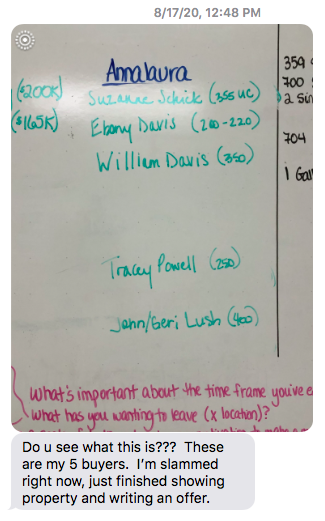 8/17/20, 12:48 PM
Annalaura
($200K) Suzanne Schick (355 UC)
($165K) Ebony Davis (200-220)
William Davis (350)
Tracey Powell (250)
John/Geri Lush (400)
359
700
2 Sin
704
1 Gar
What's important about the time frame you've e
What has you wanting to leave (x location)?
Do u see what this is??? These
are my 5 buyers. I'm slammed
right now, just finished showing
property and writing an offer.